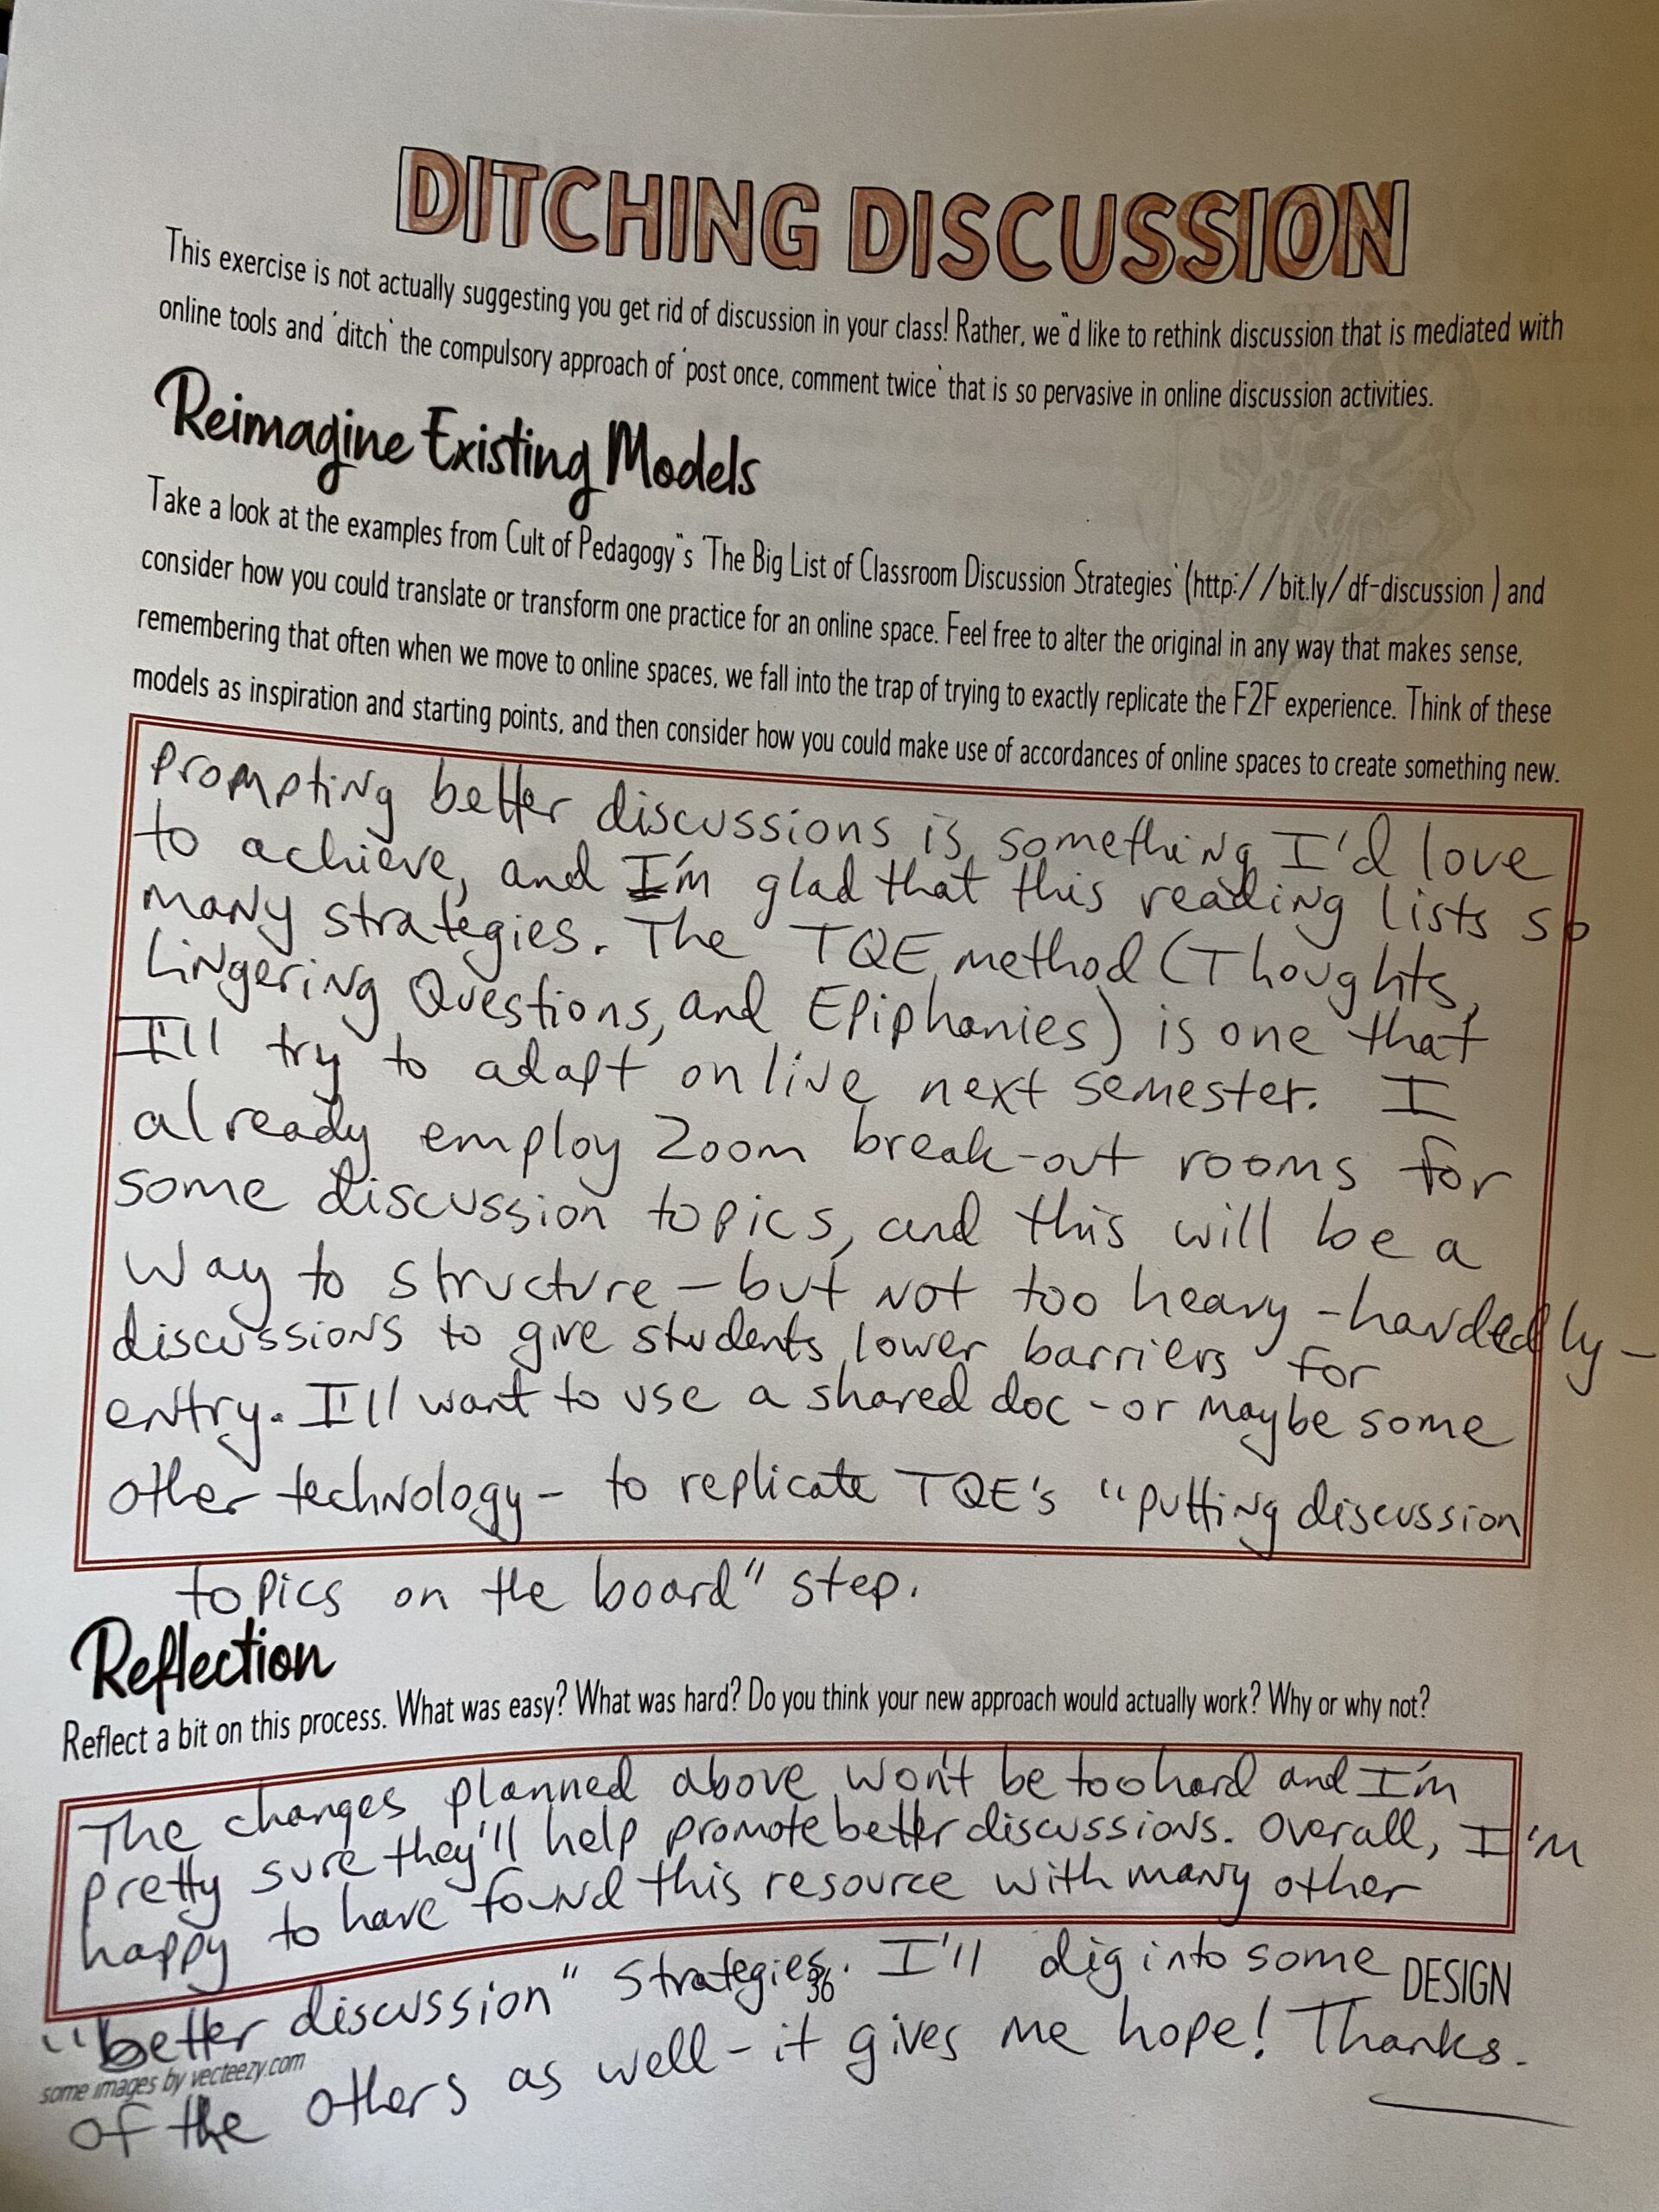 DITCHING DISCUSSION
This exercise is not actually suggesting you get rid of discussion in your class! Rather, we"d like to rethink discussion that is mediated with
online tools and 'ditch` the compulsory approach of 'post once, comment twice` that is so pervasive in online discussion activities.
Reimagine Existing Models
Take a look at the examples from Cult of Pedagogy"s 'The Big List of Classroom Discussion Strategies` (http://bit.ly/df-discussion ) and
consider how you could translate or transform one practice for an online space. Feel free to alter the original in any way that makes sense,
remembering that often when we move to online spaces, we fall into the trap of trying to exactly replicate the F2F experience. Think of these
models as inspiration and starting points, and then consider how you could make use of accordances of online spaces to create something new.
Prompting better discussions is something I'd love
to achieve, and I'm glad that this reading lists so
many strategies. The TQE method (Thoughts,
Lingering Questions, and Epiphanies) is one that
I'll try to adapt online next semester. I
already employ Zoom break-out rooms for
some discussion topics, and this will be a
way to structure - but not too heavy-handedly -
discussions to give students lower barriers for
entry. I'll want to use a shared doc - or maybe some
other technology - to replicate TQE's "putting discussion
topics on the board" step.
Reflection
Reflect a bit on this process. What was easy? What was hard? Do you think your new approach would actually work? Why or why not?
The changes planned above won't be too hard and I'm
pretty sure they'll help promote better discussions. Overall, I'm
happy to have found this resource with many other
"better discussion" strategies. I'll dig into some
of the others as well - it gives me hope! Thanks.
36
DESIGN
some images by vecteezy.com